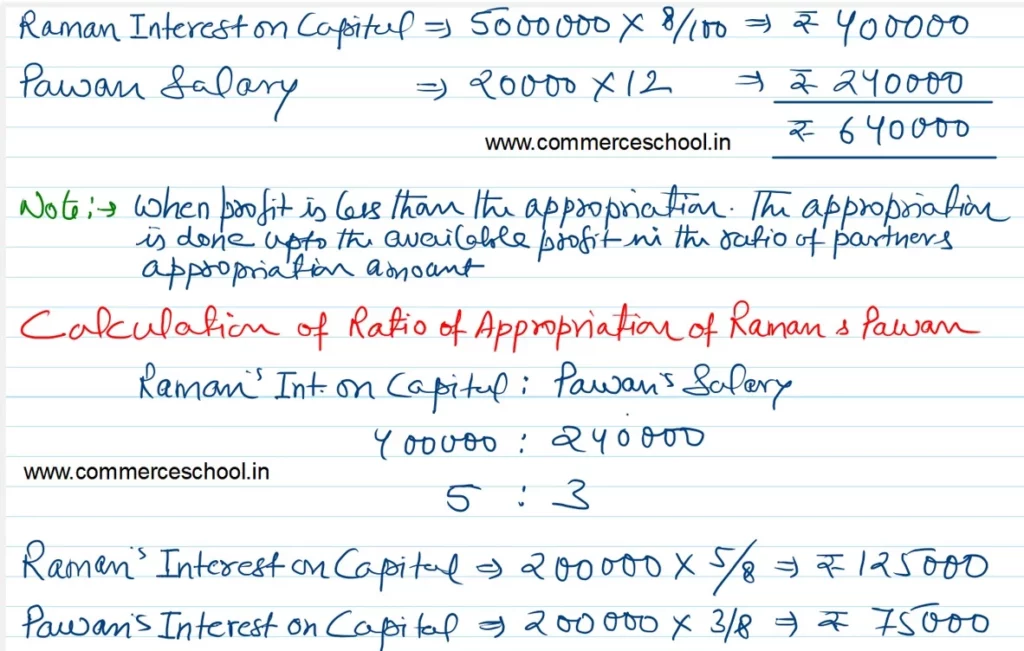 Raman Interest on Capital ⇒ 5000000 × 8/100 ⇒ ₹ 400000
Pawan Salary ⇒ 20000 × 12 ⇒ ₹ 240000
₹ 640000
www.commerceschool.in
Note:→ When profit is less than the appropriation. The appropriation
is done upto the available profit in the ratio of partners
appropriation amount
Calculation of Ratio of Appropriation of Raman & Pawan
Raman's Int. on Capital : Pawan's Salary
400000 : 240000
www.commerceschool.in
5 : 3
Raman's Interest on Capital ⇒ 200000 × 5/8 ⇒ ₹ 125000
Pawan's Interest on Capital ⇒ 200000 × 3/8 ⇒ ₹ 75000